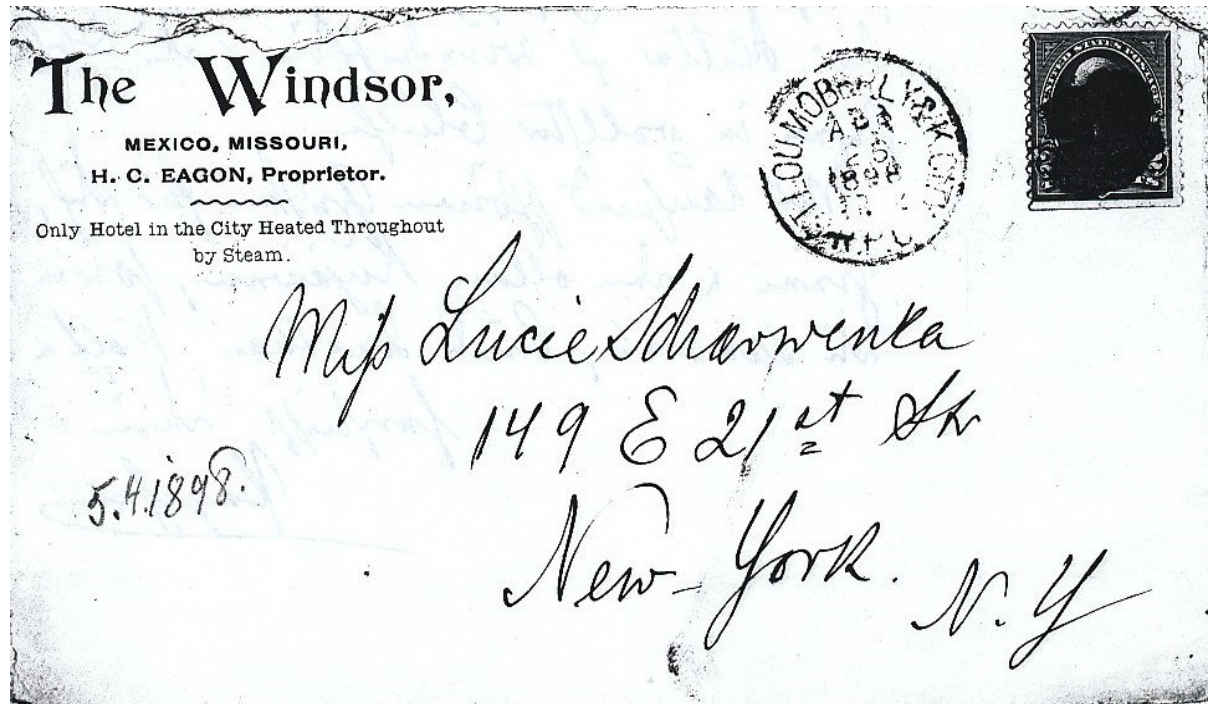 The Windsor,
MEXICO, MISSOURI,
H. C. EAGON, Proprietor.
Only Hotel in the City Heated Throughout
by Steam.
LOU. MOBERLY & K. CITY.
APR
1898
R.P.O.
UNITED STATES POSTAGE
Miss Lucie Scharwenka
149 E 21st Str
New-York. N. Y
5.4.1898.